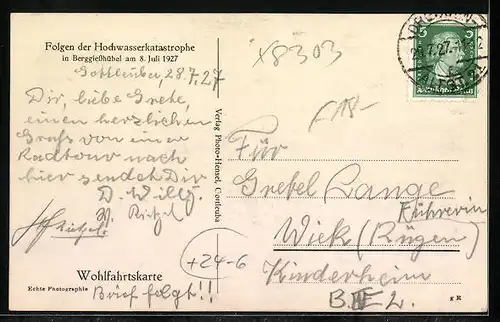 Folgen der Hochwasserkatastrophe
in Berggießhübel am 8. Juli 1927
Gottleuba, 28.7.27
Dir, liebe Grete,
einen herzlichen
Gruß von einer
Radtour nach
hier sendet Dir
D. Willy.
Wohlfahrtskarte
Echte Photographie
Brief folgt!!
Verlag Photo-Hensel, Gottleuba
x8303
+24-6
5
Für
Gretel Lange
Führerin
Wiek (Rügen)
Kinderheim
B. L.